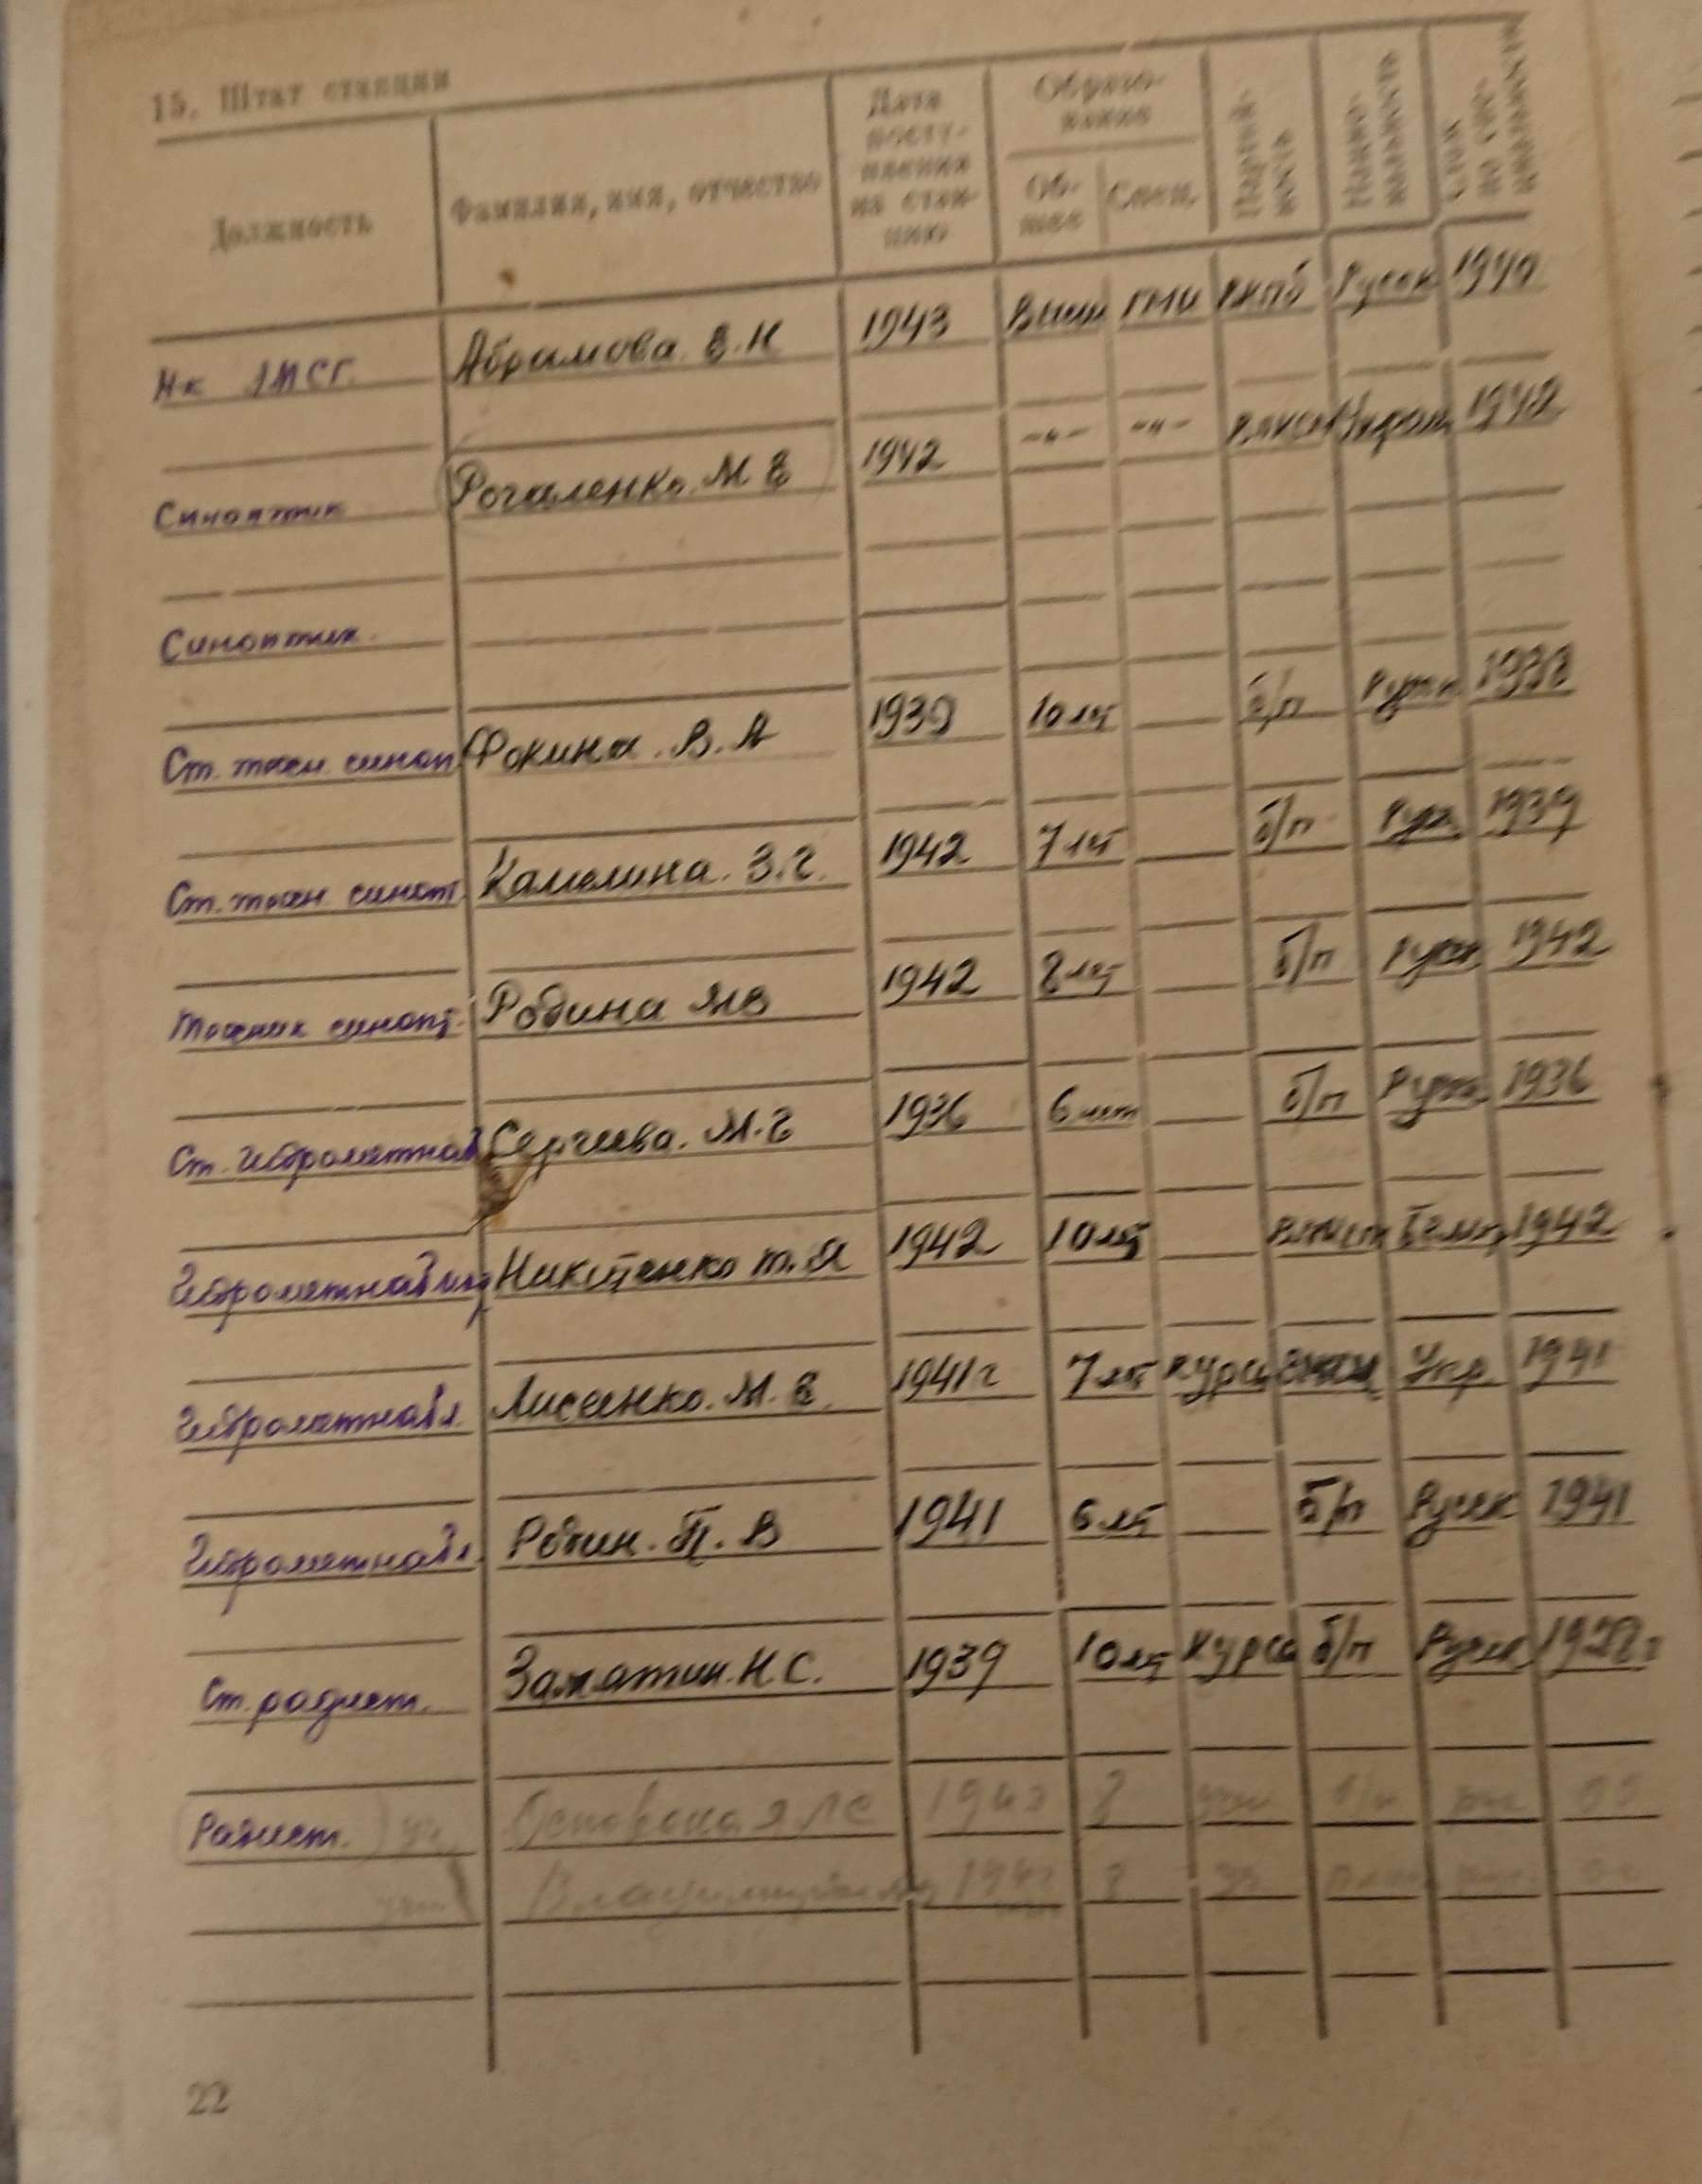 15. Штат станции
Должность
Фамилия, имя, отчество
Дата посту-
пления
на стан-
цию
Образо-
вание
Об-
щее
Спец.
Партий-
ность
Нацио-
нальность
Стаж
Н-к АМСГ. Абрамова. Е. Н 1943 Высш ГМИ ВКПб Русск 1940
Синоптик Рогаленко. М Е 1942 -"- -"- ВЛКСМ Украин 1942
Синоптик.
Ст. техн. синоп Фокина. В. А 1939 10 лт б/п Русск 1938
Ст. техн. синопт. Камелина. З. Г. 1942 7 лт б/п Русск 1939
Техник синопт. Родина ЯВ 1942 8 лт б/п Русск 1942
Ст. гидрометнаб Сергеева. М. Г 1936 6 лет б/п Русск 1936
Гидрометнабл Никитенко т. Я 1942 10 лт 1942
Гидрометнабл. Лисенко. М. Е. 1941 г 7 лт Курсы Укр 1941
Гидрометнабл. Родин. П. В 1941 6 лт б/п Русск 1941
Ст. радист. Заматин. Н С. 1939 10 лт Курсы б/п Русск
Радист. ЛС б/п
22